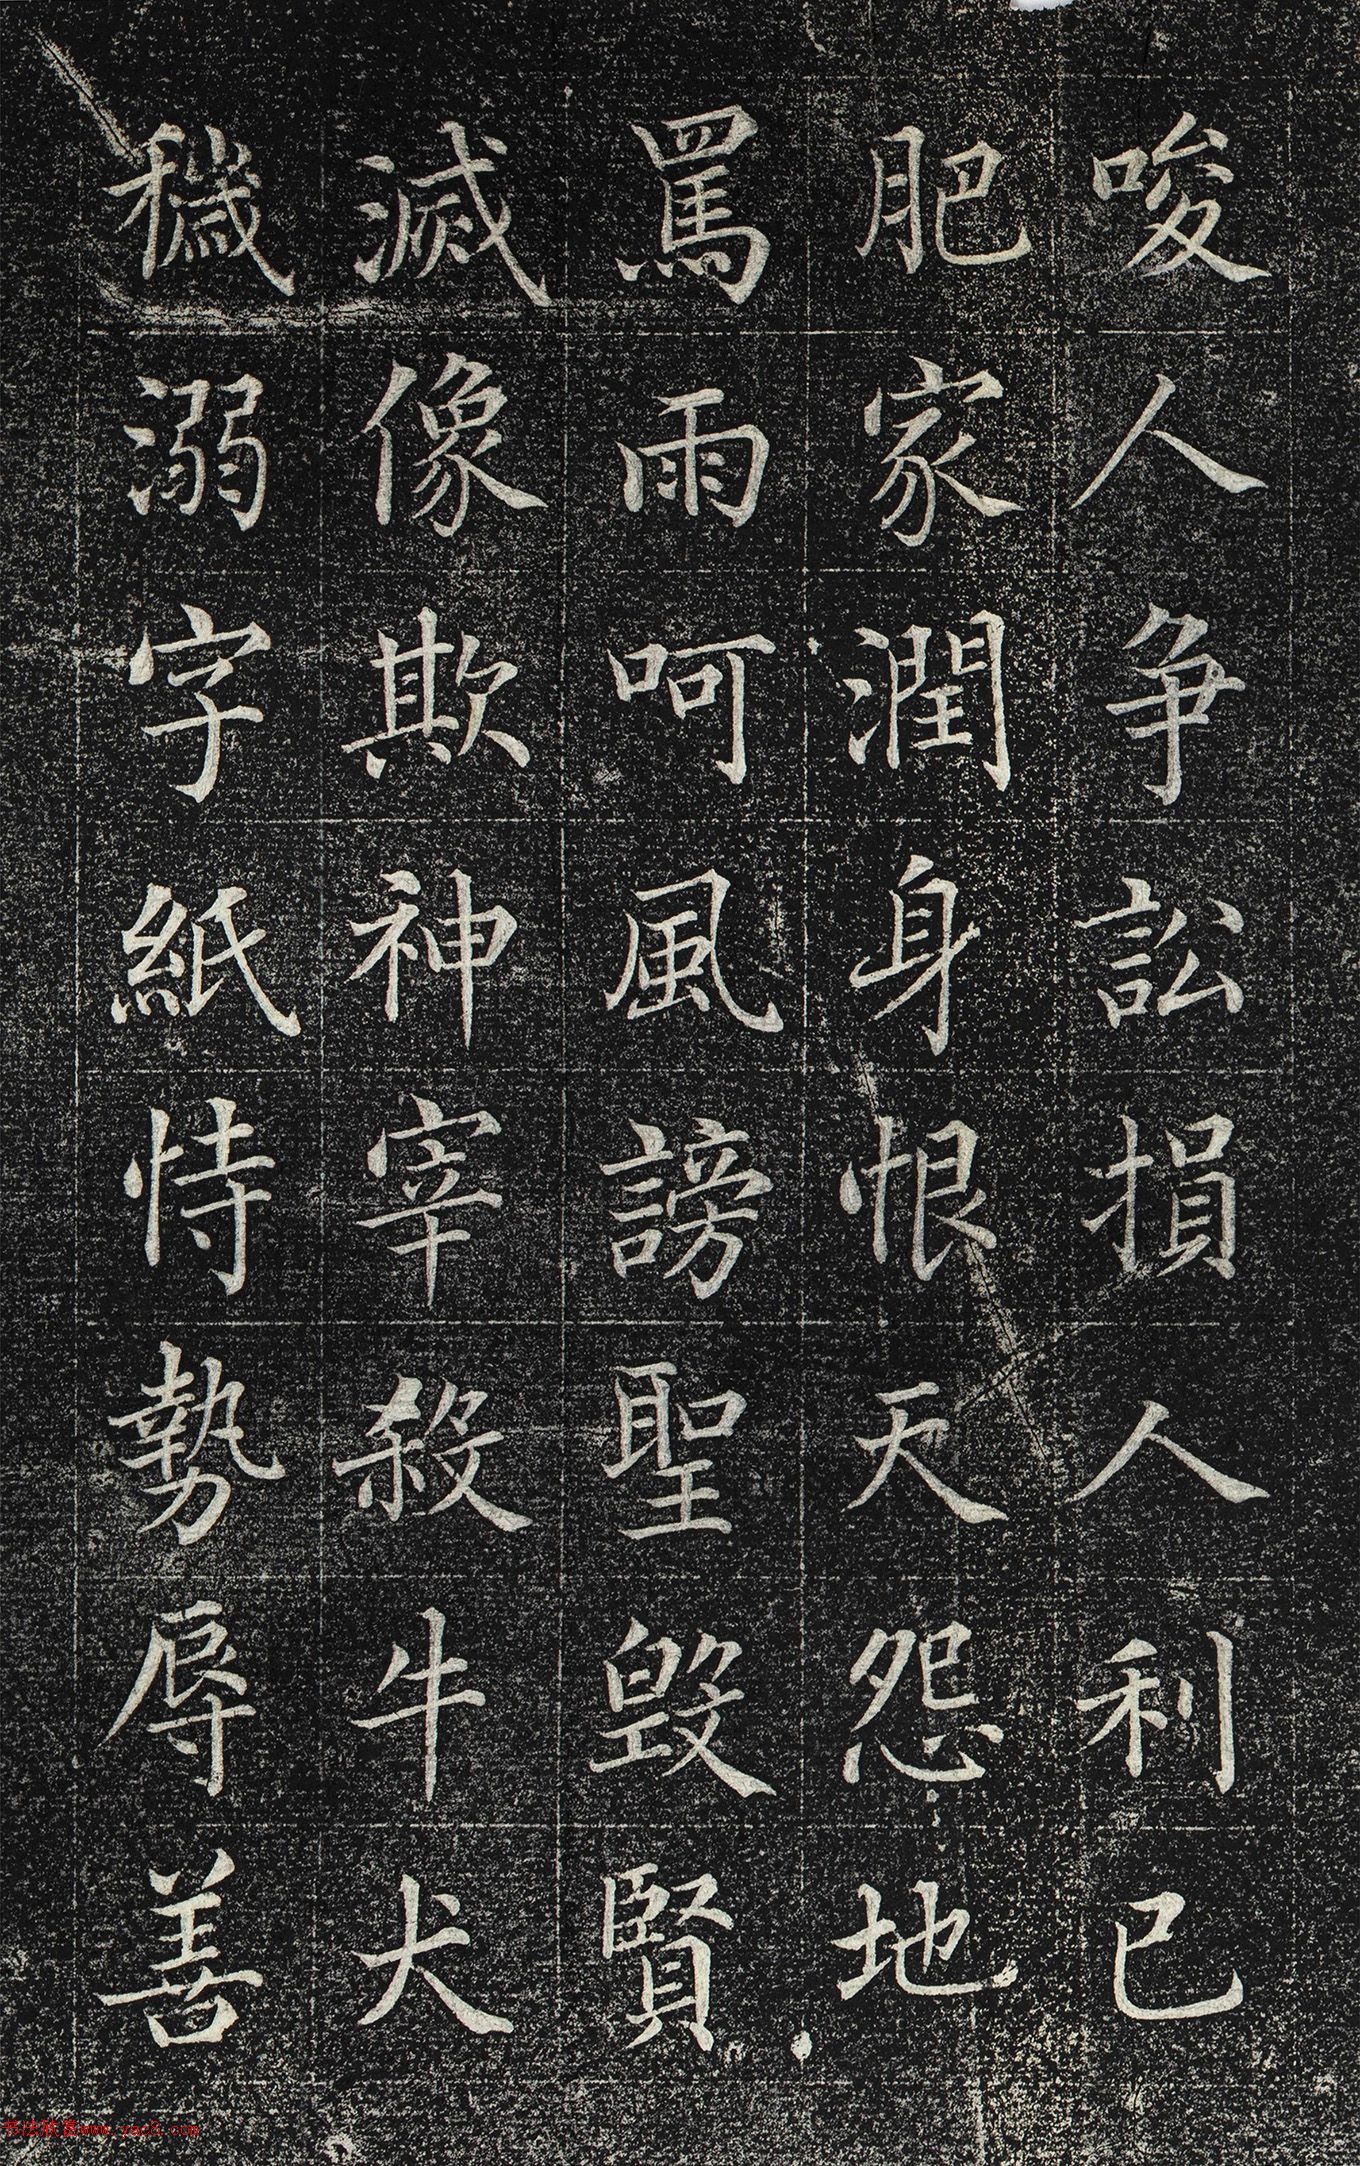 唆人争訟損人利己
肥家潤身恨天怨地
罵雨呵風謗聖毀賢
滅像欺神宰殺牛犬
穢溺字紙恃勢辱善
书法欣赏www.yac8.com